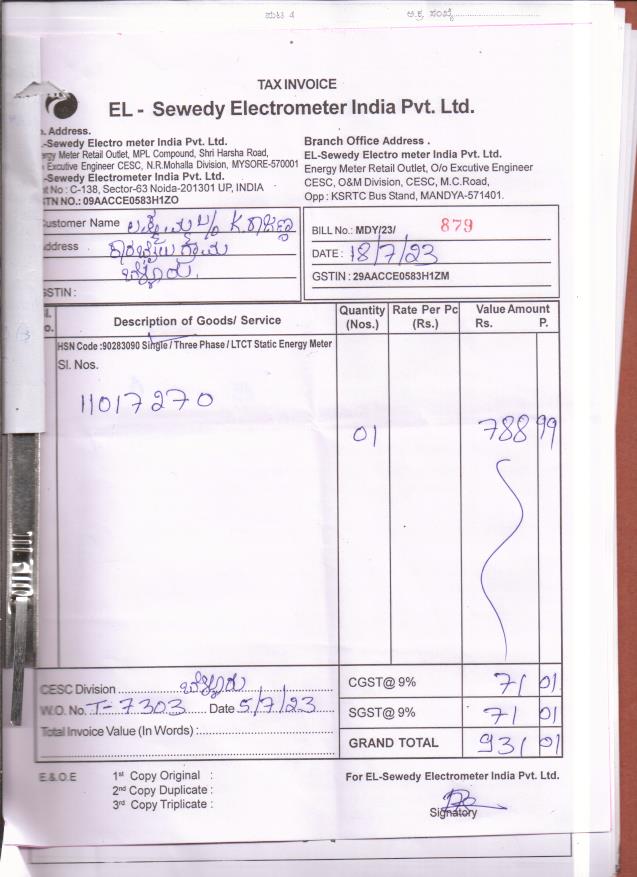 ಪುಟ 4 ಅ.ಕ್ರ. ಸಂಖ್ಯೆ
TAX INVOICE
EL - Sewedy Electrometer India Pvt. Ltd.
Address.
-Sewedy Electro meter India Pvt. Ltd.
Meter Retail Outlet, MPL Compound, Shri Harsha Road,
Excutive Engineer CESC, N.R.Mohalla Division, MYSORE-570001
-Sewedy Electrometer India Pvt. Ltd.
No : C-138, Sector-63 Noida-201301 UP, INDIA
TN NO.: 09AACCE0583H1ZO
Branch Office Address .
EL-Sewedy Electro meter India Pvt. Ltd.
Energy Meter Retail Outlet, O/o Excutive Engineer
CESC, O&M Division, CESC, M.C.Road,
Opp : KSRTC Bus Stand, MANDYA-571401.
ustomer Name
ddress
GSTIN :
BILL No.: MDY/23/ 879
DATE : 18/7/23
GSTIN : 29AACCE0583H1ZM
Description of Goods/ Service Quantity (Nos.) Rate Per Pc (Rs.) Value Amount Rs. P.
HSN Code :90283090 Single / Three Phase / LTCT Static Energy Meter
Sl. Nos.
11017270
01 788 99
CESC Division
W.O. No. T-7303 Date 5/7/23
Total Invoice Value (In Words) :
CGST@ 9% 71 01
SGST@ 9% 71 01
GRAND TOTAL 931 01
E.& O.E 1st Copy Original :
2nd Copy Duplicate :
3rd Copy Triplicate :
For EL-Sewedy Electrometer India Pvt. Ltd.
Signatory